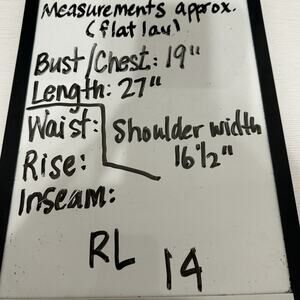 Measurements approx.
(flat lay)
Bust/Chest: 19"
Length: 27"
Waist:
Shoulder width
16 1/2"
Rise:
Inseam:
RL 14